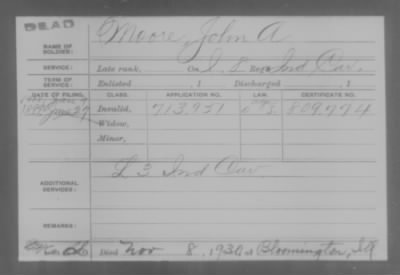 DEAD
NAME OF SOLDIER: Moore, John A
SERVICE: Late rank, Co. L. 8 Reg't Ind Cav.
TERM OF SERVICE: Enlisted , 1 Discharged , 1
DATE OF FILING. CLASS. APPLICATION NO. LAW. CERTIFICATE NO.
June 27 Invalid, 713.951 809.774
Widow,
Minor,
ADDITIONAL SERVICES: L 3 Ind Cav
REMARKS:
Died Nov 8, 1930, at Bloomington, Ill